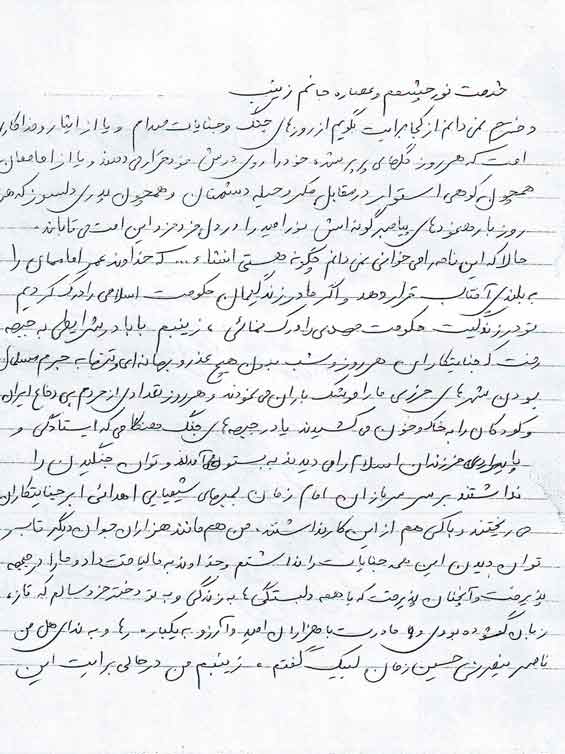 خدمت نور چشمم و عصاره جانم زینب
دخترم نمی دانم از کجا برایت بگویم از روزهای جنگ و جنایات صدام و یا از ایثار و فداکاری
امت که هر روز گلهای پرپر شده خود را روی دوش خود قرار می دهند و یا از اماممان
همچون کوهی استوار در مقابل مکر و حیله دشمنان و همچون پدری دلسوز که هر
روز با رهنمودهای پیامبر گونه اش نور امید را در دل فرد فرد این امت می تاباند.
حالا که این نامه را می خوانی نمی دانم چگونه هستی انشاء ... که خداوند عمر اماممان را
به بلندی آفتاب قرار دهد و اگر ما در زندگیمان حکومت اسلامی را درک کردیم
تو در زندگیت حکومت مهدی را درک نمائی، زینبم بابا در شرایطی به جبهه
رفت که جنایتکاران هر روز و شب بدون هیچ عذر و بهانه ای و تنها به جرم مسلمان
بودن شهرهای مرزی ما را موشک باران می نمودند و هر روز تعدادی از مردم بی دفاع ایران
و کودکان را به خاک و خون می کشیدند یا در جبهه های جنگ هنگامی که ایستادگی و
پایداری فرزندان اسلام را می دیدند به ستوه می آمدند و توان جنگیدن را
نداشتند بر سر سربازان امام زمان بمبهای شیمیایی اهدائی ابرجنایتکاران
می ریختند و باکی هم از این کار نداشتند. من هم مانند هزاران جوان دیگر تاب و
توان دیدن این همه جنایات را نداشتم و خداوند به ما لیاقت داد و ما را در جبهه
پذیرفت و آنچنان پذیرفت که با همه دلبستگی ها به زندگی و به تو دختر خردسالم که تازه
زبان گشوده بودی و مادرت با هزاران امید و آرزو به یکباره رها و به ندای هل من
ناصر ینصرنی حسین زمان لبیک گفتم. زینبم من در حالی برایت این